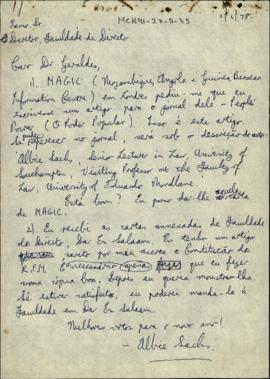 MCH91-29-5-35
1/1/78
Exmo. Sr
Director, Faculdade de Direito
Caro Dr Geraldes,
1). MAGIC (Mozambique, Angola e Guinea Bissau
Information Centre) em Londres pediu-me que eu
escrevesse um artigo para o jornal dele - People's
Power (O Poder Popular). Isso é este artigo.
no jornal, será sob o descreção de autor:
Albie Sachs, Senior Lecturer in Law, University of
Southampton, Visiting Professor at the Faculty of
Law, University of Eduardo Mondlane.
Está bom? Eu posso dar-lhe
de MAGIC.
2). Eu recibi as cartas annecadas da Faculdade
de Direito, Dar Es Salaam. Eu tenho um artigo
por mão acerca a Constitução da
R.P.M. É necessário apenas que eu fazer
uma cópia boa. Depois eu queria mostrar-lha
Se estiver satisfeito, eu poderei manda-la à
Faculdade em Dar Es Salaam.
Melhores votos para o novo ano!
- Albie Sachs